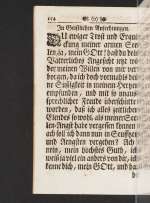 In Geistlichen Anfechtungen.
DU ewiger Trost und Erqui-
ckung meiner armen See-
len ja, mein GOtt! daß du dein
Vätterliches Angesicht
der meinen Willen von mir ver-
borgen, da ich doch vormahls deine
Süßigkeit in meinem Hertzen
empfunden, und mit
sprechlicher Freude überschütte
worden, daß ich alles zeitlichen
Elendes so wohl, als meiner See-
len-Angst habe vergessen können
ach soll ich dann nun in Seufftzen
und Aengsten vergehen? Ach
nein, mein höchstes Guth, ich
weiß ja viel ein anders von dir, ich
kenne dich, mein GOtt, und